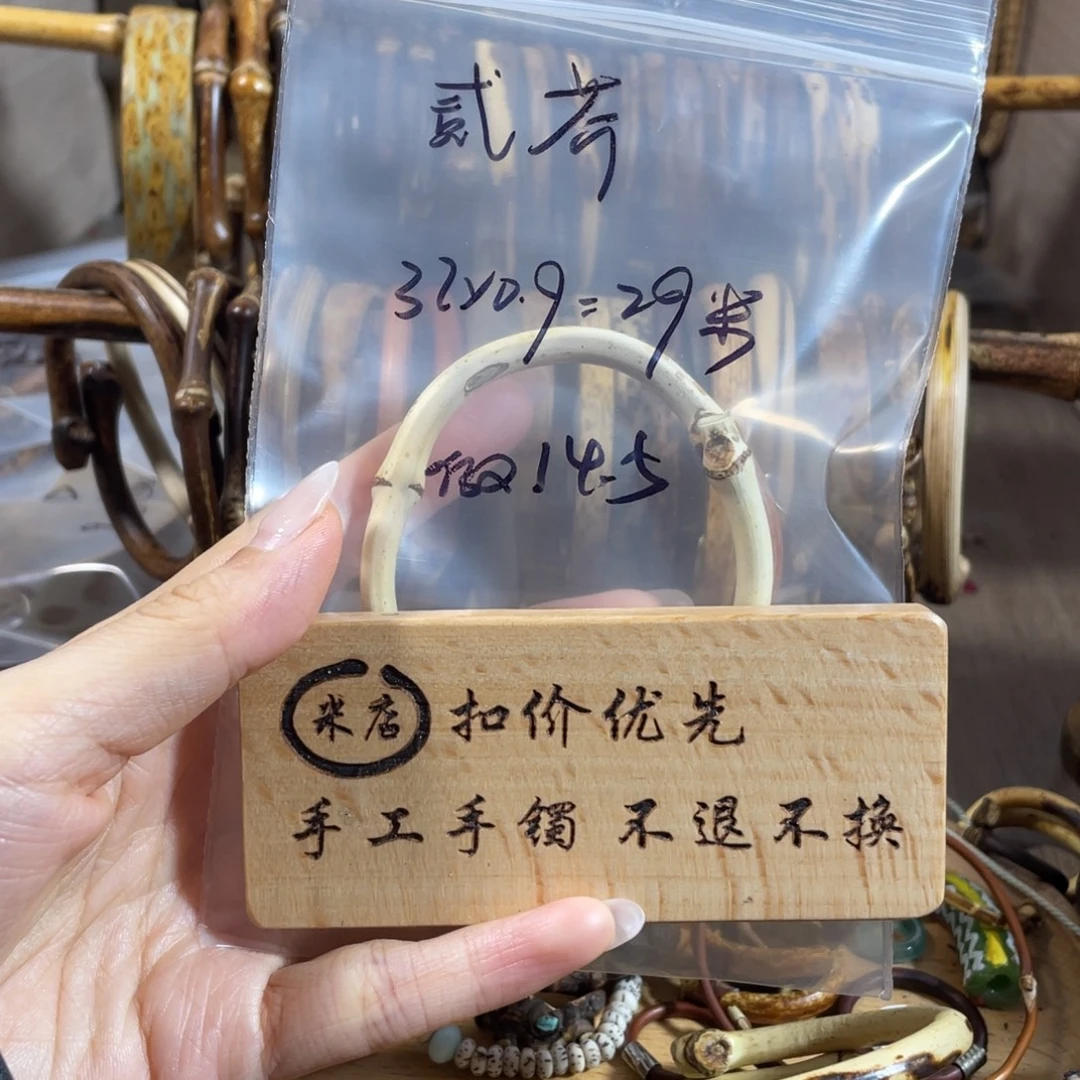 贰荷
32x0.9=29米
做14.5
米店 扣价优先
手工手镯 不退不换